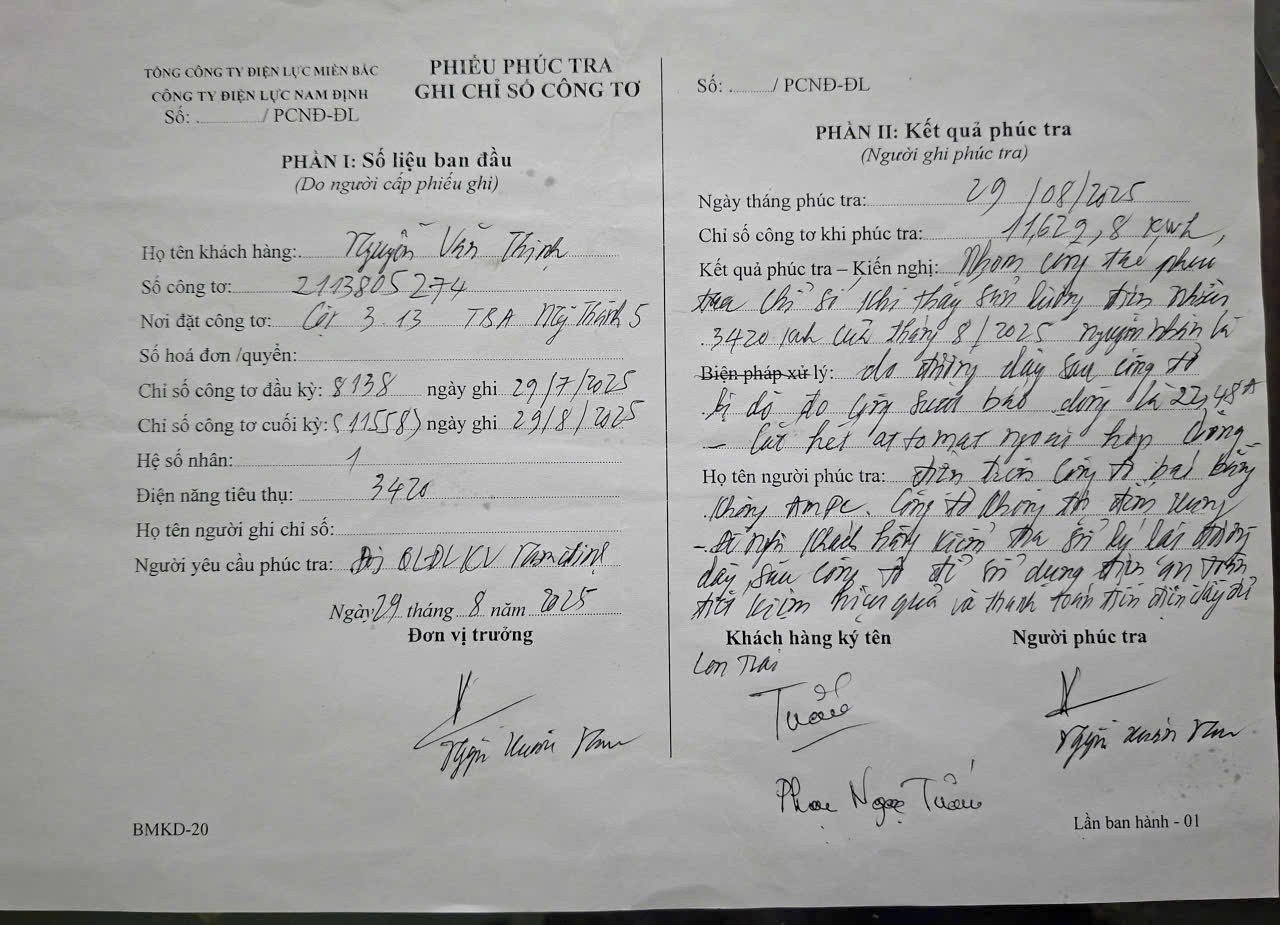 TỔNG CÔNG TY ĐIỆN LỰC MIỀN BẮC
CÔNG TY ĐIỆN LỰC NAM ĐỊNH
Số: ............/ PCNĐ-ĐL
PHIẾU PHÚC TRA
GHI CHỈ SỐ CÔNG TƠ
PHẦN I: Số liệu ban đầu
(Do người cấp phiếu ghi)
Họ tên khách hàng: Nguyễn Văn Thịnh
Số công tơ: 2113805274
Nơi đặt công tơ: Cột 3.13 TBA Mỹ Thành 5
Số hoá đơn /quyển:
Chỉ số công tơ đầu kỳ: 8138 ngày ghi 29/7/2025
Chỉ số công tơ cuối kỳ: (11558) ngày ghi 29/8/2025
Hệ số nhân: 1
Điện năng tiêu thụ: 3420
Họ tên người ghi chỉ số:
Người yêu cầu phúc tra: Đội QLĐL KV Nam định
Ngày 29 tháng 8 năm 2025
Đơn vị trưởng
Xuân
BMKD-20
Số: ........../ PCNĐ-ĐL
PHẦN II: Kết quả phúc tra
(Người ghi phúc tra)
Ngày tháng phúc tra: 29/08/2025
Chỉ số công tơ khi phúc tra: 11,629,8 kwh,
Kết quả phúc tra – Kiến nghị: Nhóm công tơ phúc
tra chỉ số khi thấy sản lượng điện nhiều
3420 kwh của tháng 8/2025 nguyên nhân là
Biện pháp xử lý: do đường dây sau công tơ
bị dò đo công suất báo dòng là 22,48A
- Cắt hết attomat ngoài hộp dòng
Họ tên người phúc tra: điện trên công tơ báo bằng
không Ampe. Công tơ không đếm xung
- Đề nghị khách hàng kiểm tra xử lý lại đường
dây sau công tơ để sử dụng điện an toàn
tiết kiệm hiệu quả và thanh toán tiền điện đầy đủ
Khách hàng ký tên
Người phúc tra
Con Trai
Tuấn
Xuân
Ngọc Tuấn
Lần ban hành - 01